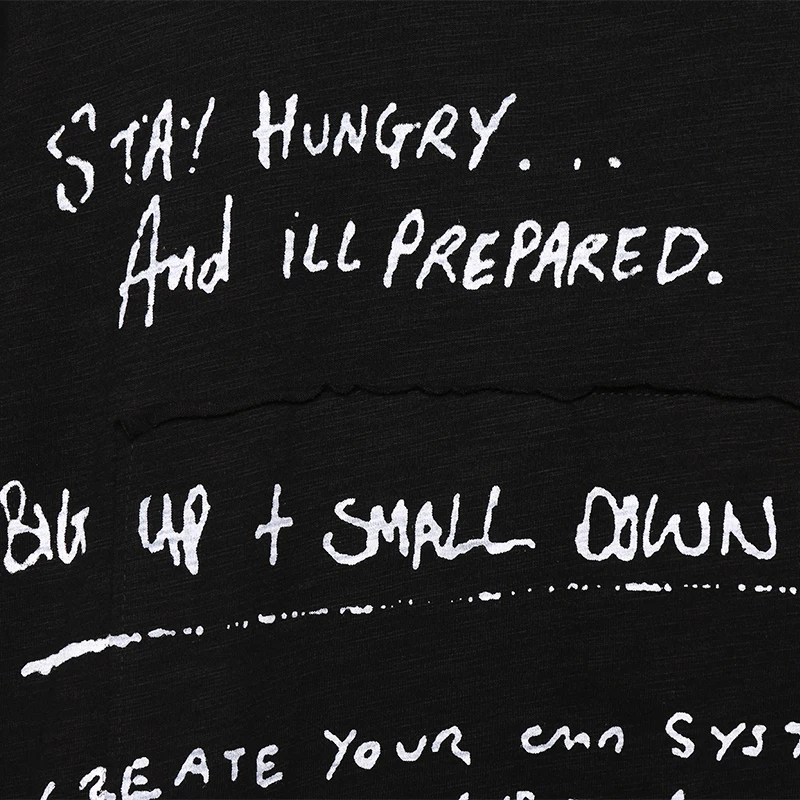 STAY HUNGRY...
And ill PREPARED.
BIG UP + SMALL DOWN
CREATE YOUR own SYST